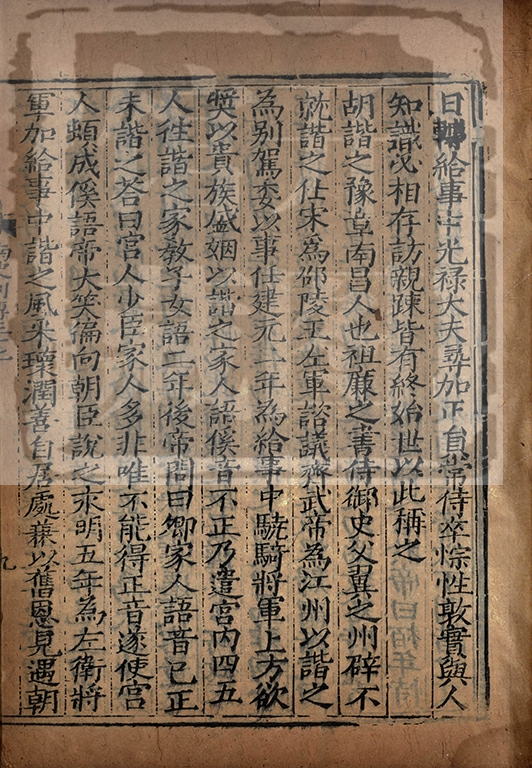 日轉給事中光祿大夫尋加正貟常侍卒悰性敦實與人
知識必相存訪親踈皆有終始世以此稱之
胡諧之豫章南昌人也祖廉之書侍御史父翼之州辟不
就諧之仕宋為邵陵王左軍諮議齊武帝為江州以諧之
為別駕委以事任建元二年為給事中驍騎將軍上方欲
奬以貴族盛姻以諧之家人語傒音不正乃遣宮內四五
人往諧之家敎子女語二年後帝問曰卿家人語音已正
未諧之答曰宮人少臣家人多非唯不能得正音遂使宮
人頓成傒語帝大笑徧向朝臣說之永明五年為左衞將
軍加給事中諧之風采瓌潤善自居處兼以舊恩見遇朝
九